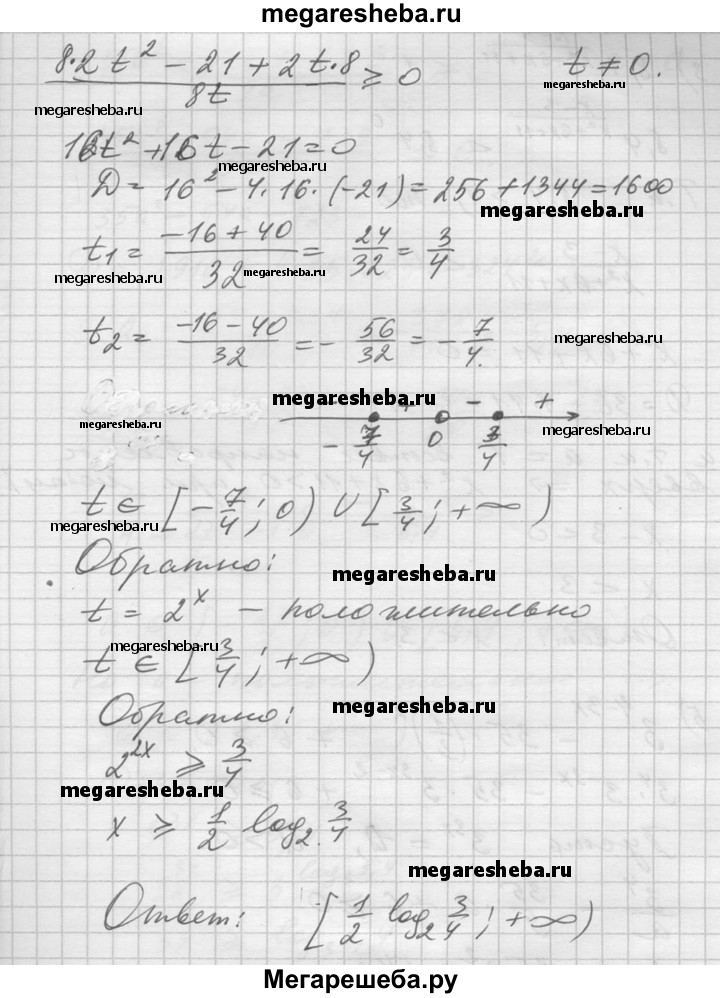 megaresheba.ru
8·2t² − 21 + 2t·8 / 8t ≥ 0 t ≠ 0.
megaresheba.ru
megaresheba.ru
16t² + 16t − 21 = 0
megaresheba.ru
D = 16² − 4·16·(−21) = 256 + 1344 = 1600
megaresheba.ru
t₁ = −16 + 40 / 32 = 24/32 = 3/4
megaresheba.ru megaresheba.ru
t₂ = −16 − 40 / 32 = − 56/32 = − 7/4. megaresheba.ru
megaresheba.ru
+ − +
megaresheba.ru megaresheba.ru
− 7/4 0 3/4
t ∈ [− 7/4; 0) ∪ [3/4; +∞)
megaresheba.ru
Обратно:
megaresheba.ru
t = 2ˣ – положительно
megaresheba.ru
t ∈ [3/4; +∞)
Обратно: megaresheba.ru
2²ˣ ≥ 3/4
megaresheba.ru
x ≥ 1/2 log₂. 3/4
megaresheba.ru
Ответ: [1/2 log₂ 3/4; +∞)
Мегарешеба.ру